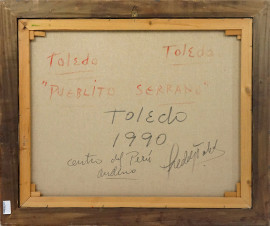 Toledo Toledo
"PUEBLITO SERRANO"
TOLEDO
1990
centro del Perú
andino